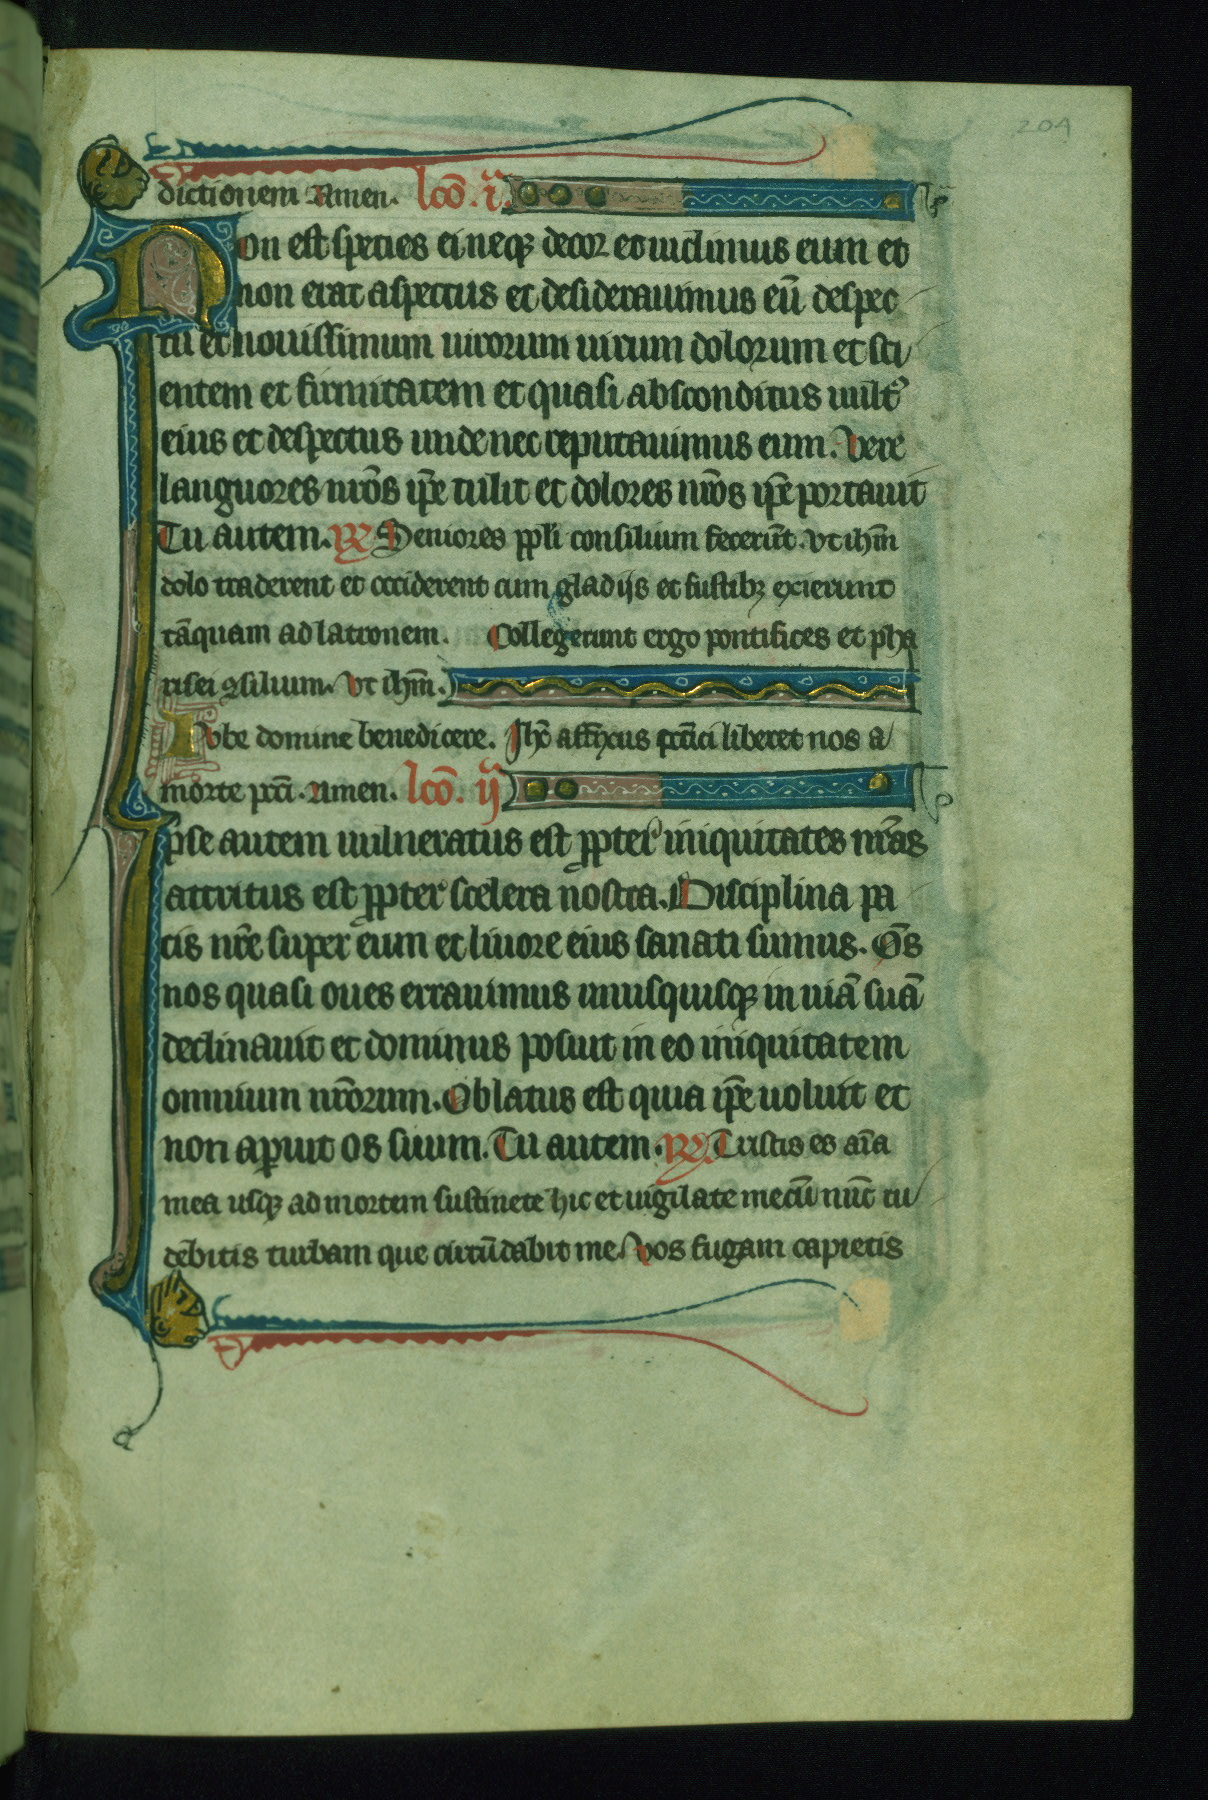 204
dictionem Amen. lc̄o. i.
Non est species ei neq; decor et uidimus eum et
non erat aspectus et desiderauimus eū despec
tū et nouissimum uirorum uirum dolorum et sci
entem et firmitatem et quasi absconditus uult᷒
eius et despectus unde nec reputauimus eum. Vere
languores nr̄os ip̄e tulit et dolores nr̄os ip̄e portauit
Tu autem. R̷ Seniores pp̄li consilium fecerūt. vt ih̄m
dolo traderent et occiderent cum gladijs et fustib; exierunt
tāquam ad latronem. Collegerunt ergo pontifices et pha
risei ꝯsilium. Vt ih̄m.
Iube domine benedicere. Ih̄c affixus liberet nos a
morte Amen. lc̄o. ij
Ipse autem uulneratus est ꝓpter iniquitates nr̄as
attritus est ꝓpter scelera nostra. Disciplina pa
cis nr̄e super eum et liuore eius sanati sumus. Om̄s
nos quasi oues errauimus unusquisq; in uiā suā
declinauit et dominus posuit in eo iniquitatem
omnium nr̄orum. Oblatus est quia ip̄e uoluit et
non aꝑuit os suum. Tu autem. R̷. Tristis es aīa
mea usq; ad mortem sustinete hic et uigilate mecū nūc ui
debitis turbam que circūdabit me. Vos fugam capietis